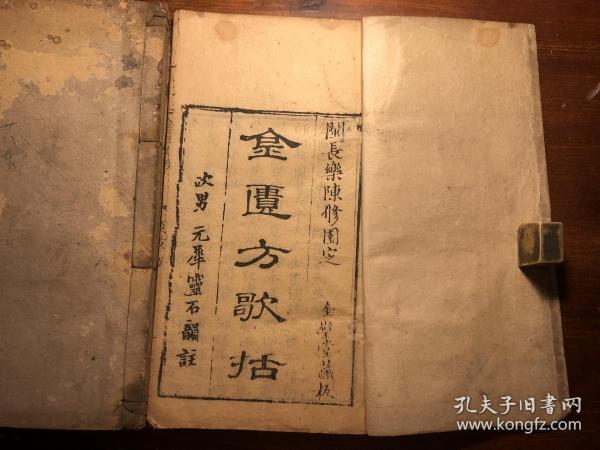 閩長樂陳修園定
金匱方歌括
次男元犀靈石韻註
藏板
孔夫子旧书网
www.kongfz.com